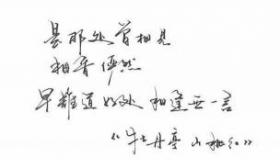 是那处曾相见
相看俨然
早难道好处相逢无一言
《牡丹亭 山桃红》